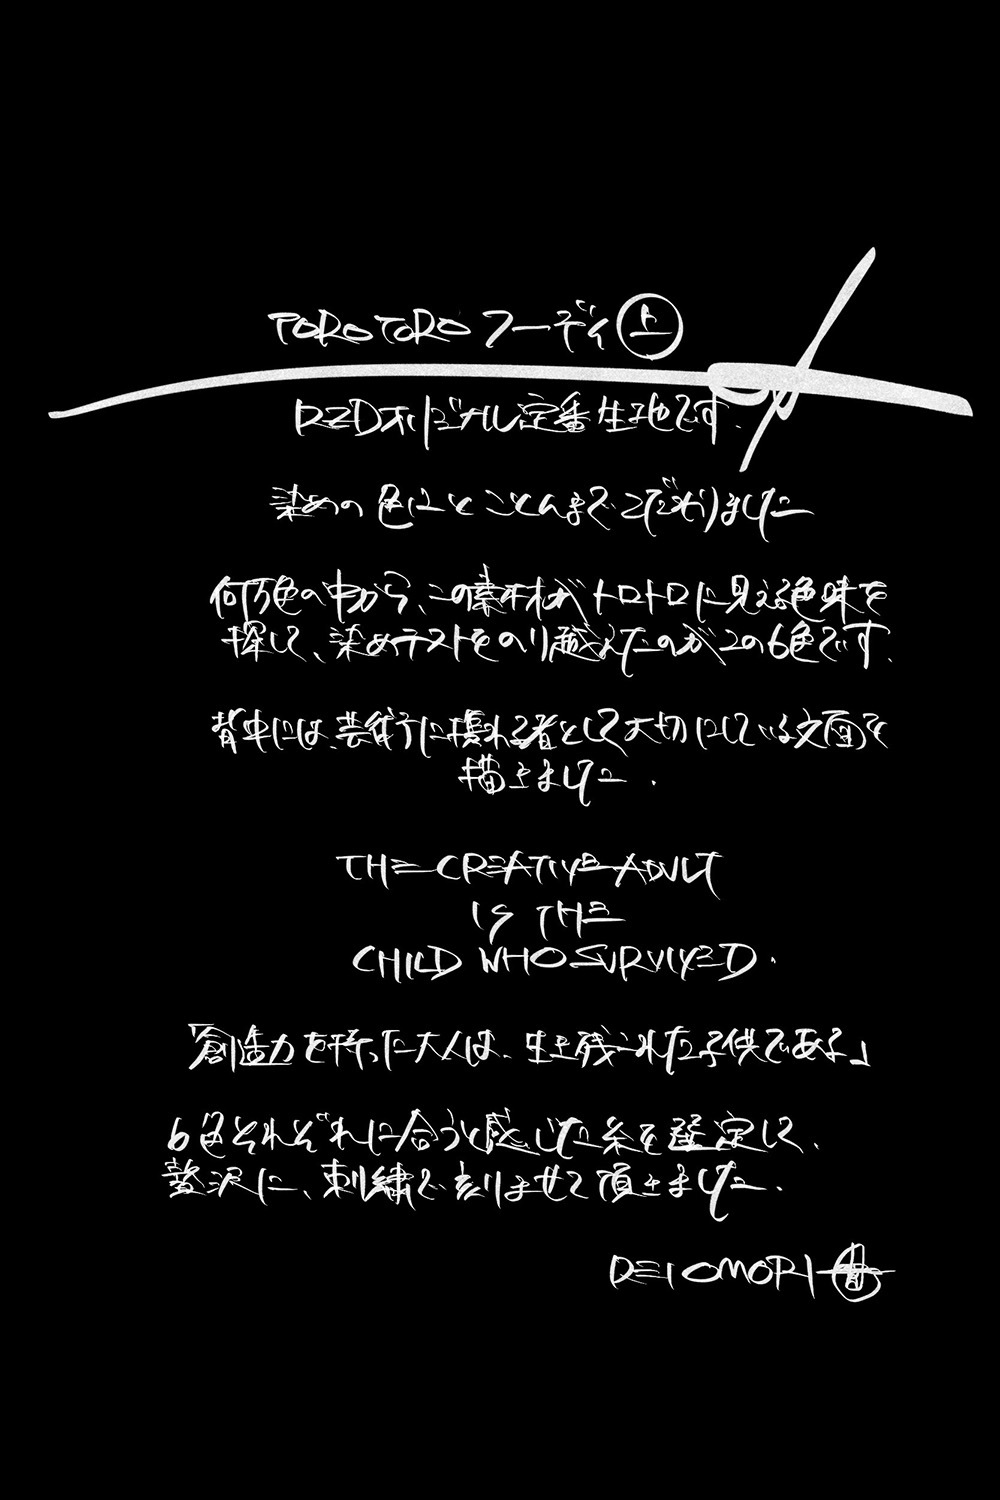 TOROTOROフーディ 上
RZDオリジナル定番生地です.
染めの色にとことんまでこだわりました
何万色の中から、この素材がトロトロに見える色味を
探して、染めテストをのり越えたのがこの6色です.
背中には、芸術に携わる者として大切にしている文面を
描きました.
THE CREATIVE ADULT
IS THE
CHILD WHO SURVIVED.
「創造力を持った大人は、生き残られた子供である」
6色それぞれに合うと感じた糸を選定して、
贅沢に、刺繍で刻ませて頂きました.
REI OMORI